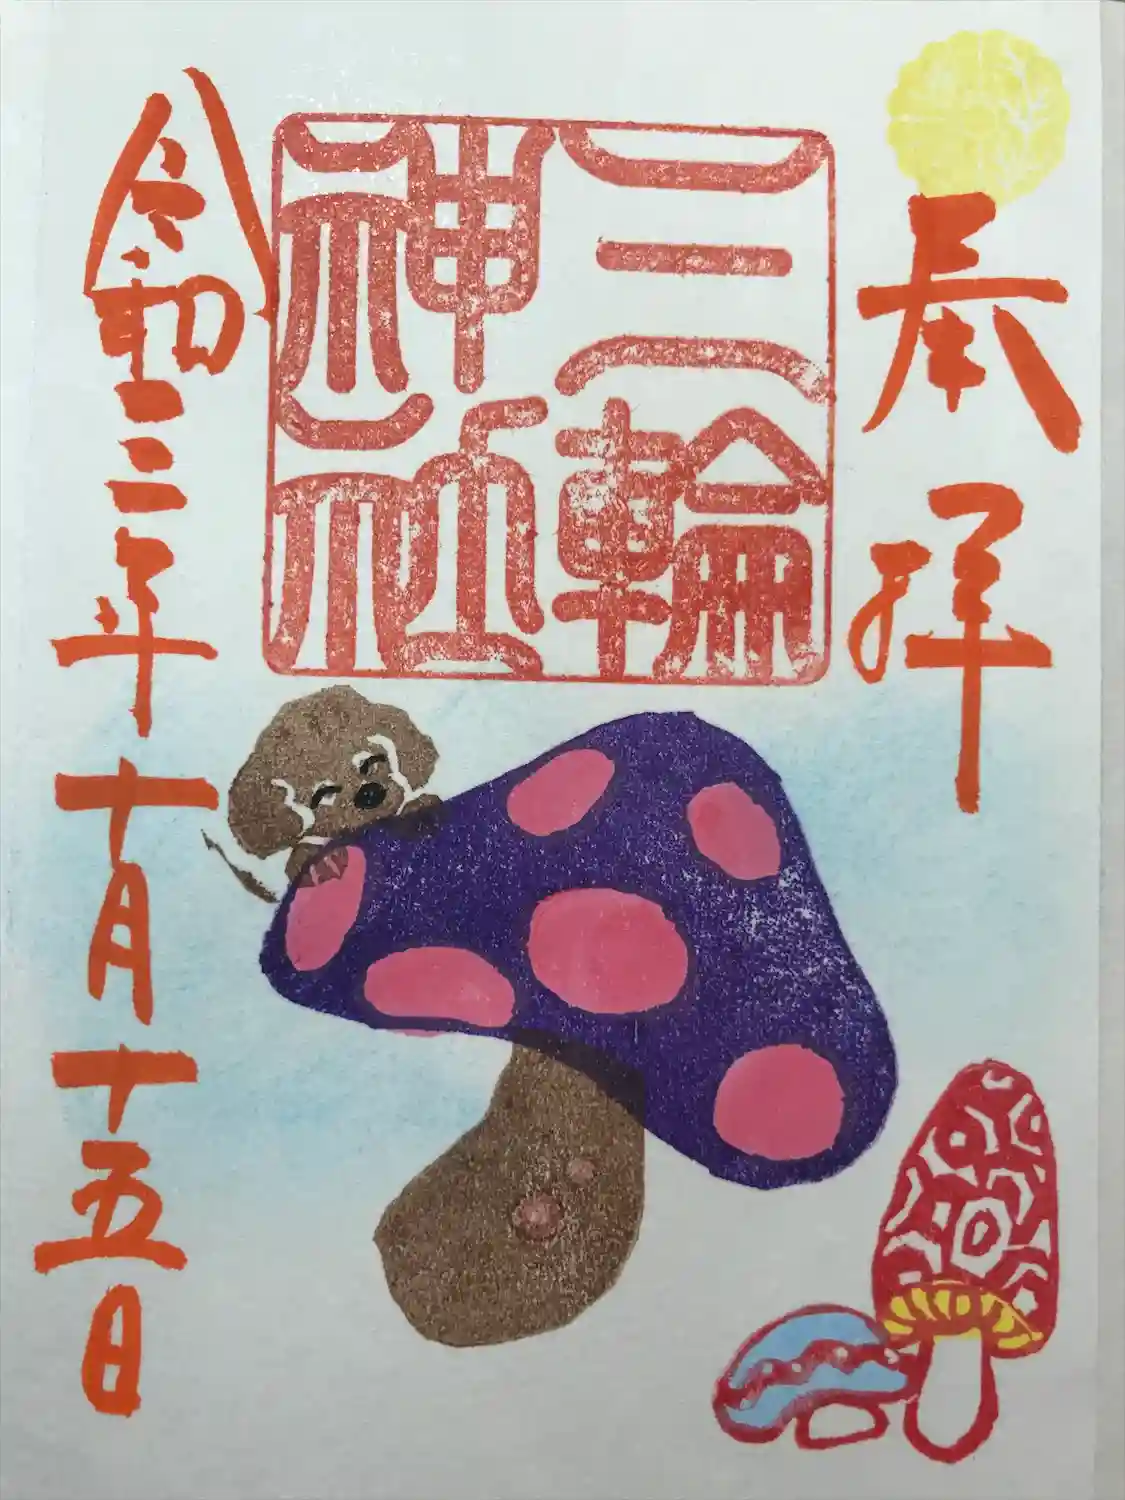 奉拝
三輪
神社
令和三年十月十五日